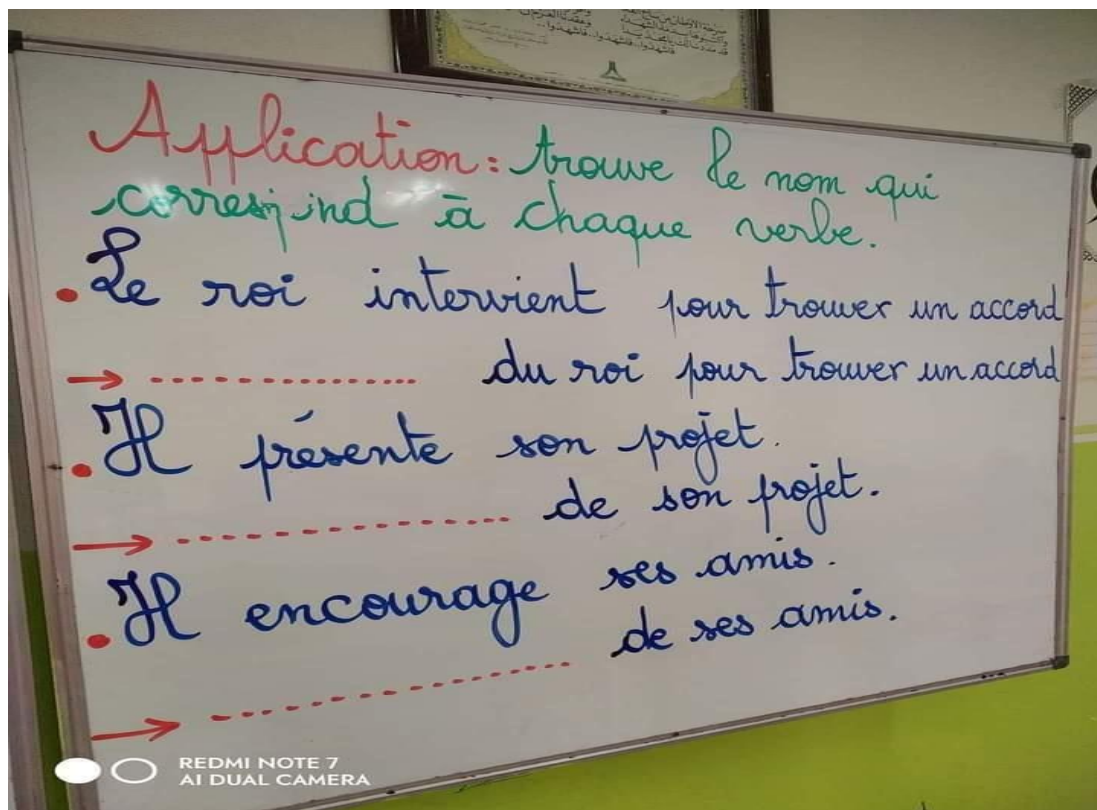 Application: trouve le nom qui
correspond à chaque verbe.
• Le roi intervient pour trouver un accord
→ ................. du roi pour trouver un accord
• Il présente son projet.
→ ................. de son projet.
• Il encourage ses amis.
→ ................. de ses amis.
REDMI NOTE 7
AI DUAL CAMERA